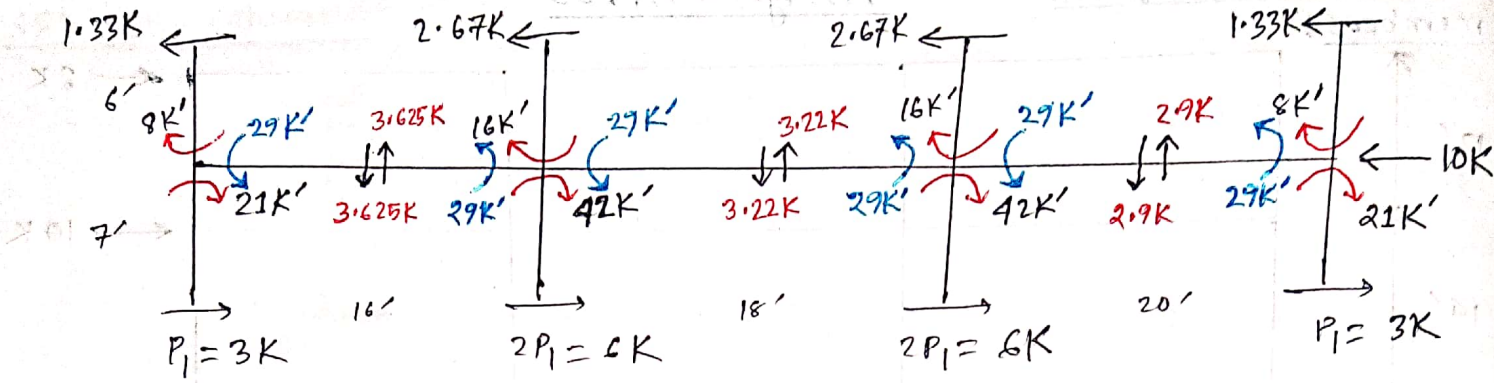 1.33K 2.67K 2.67K 1.33K
6'
8K' 29K' 3.625K 16K' 29K' 3.22K 16K' 29K' 2.9K 8K'
10K
21K' 3.625K 29K' 42K' 3.22K 29K' 42K' 2.9K 29K' 21K'
7'
16' 18' 20'
P₁ = 3K 2P₁ = 6K 2P₁ = 6K P₁ = 3K